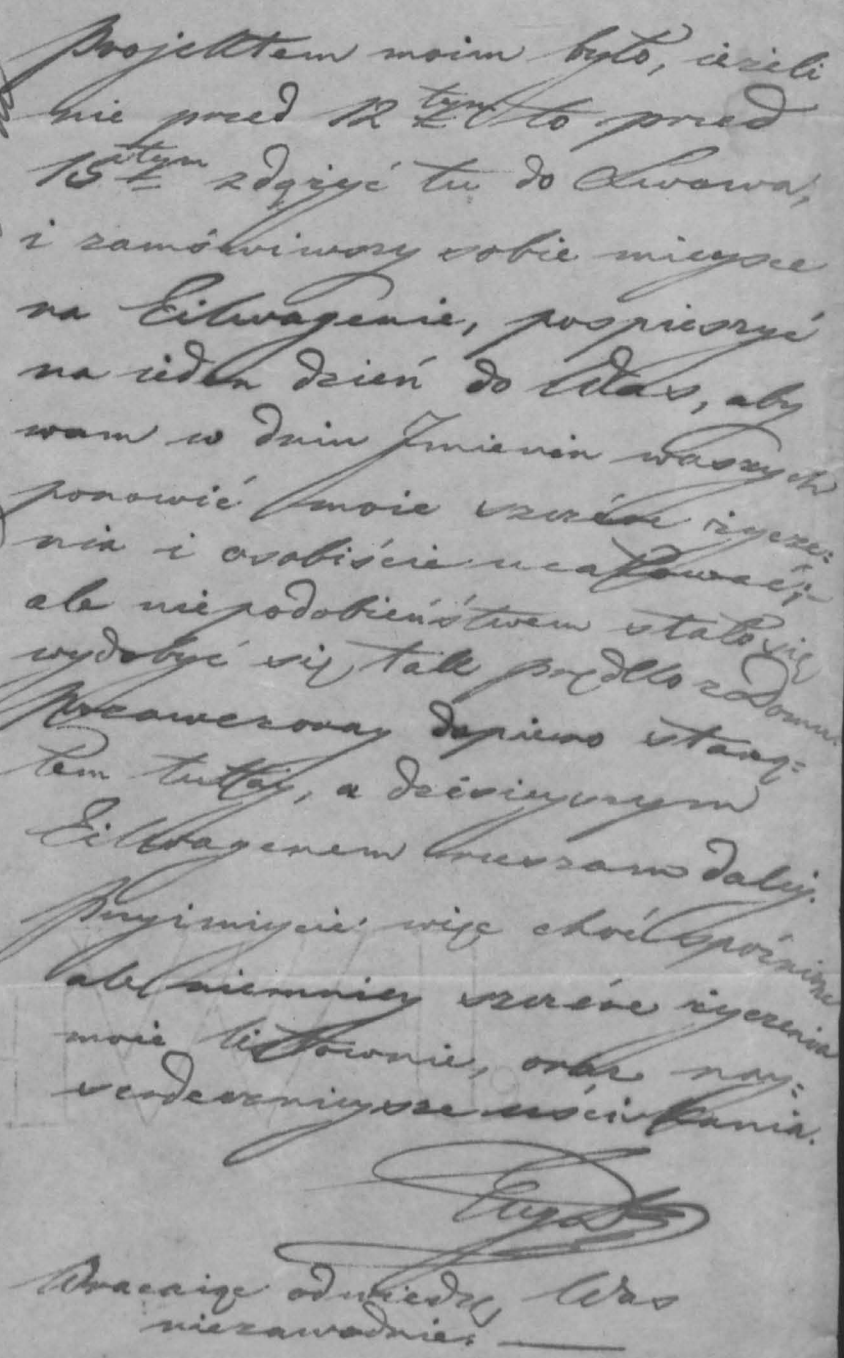 Projektem moim było, ieżeli
nie przed 12 tym to przed
15 tym zdążyć tu do Lwowa,
i zamówiwszy sobie mieysce
na Eilwagenie, pospieszyć
na ieden dzień do Was, aby
wam w dniu Imienin waszych
ponowić moie szczére życze=
nia i osobiście ucałować;
ale niepodobieństwem stało się
wydobyć się tak prędko z Domu.
Przawczoray dopiero staną=
łem tutay, a dzisieyszym
Eilwagenem ruszam daléy.
Przyimiycie więc choć spoźnione
ale niemniey szczére życzenia
moie listownie, oraz nay=
serdecznieysze uściskania.
Wracaiąc odwiedzę Was
niezawodnie. —